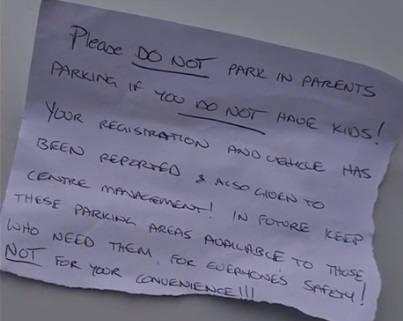 Please DO NOT PARK IN PARENTS
PARKING IF YOU DO NOT HAVE KIDS!
YOUR REGISTRATION AND VEHICLE HAS
BEEN REPORTED & ALSO GIVEN TO
CENTRE MANAGEMENT! IN FUTURE KEEP
THESE PARKING AREAS AVAILABLE TO THOSE
WHO NEED THEM. FOR EVERYONE'S SAFETY!
NOT FOR YOUR CONVENIENCE!!!